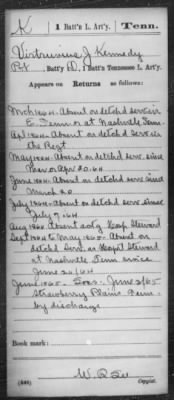 K | 1 Batt'n L. Art'y. | Tenn.
Vitruvius J. Kennedy
Pvt, Batt'y D, 1 Batt'n Tennessee L. Art'y.
Appears on Returns as follows:
Mch 1864 - Absent on detchd service
E. Tenn or at Nashville Tenn
Apl 1864 - Absent on detchd Serv in
the Regt
May 1864 - Absent on detchd serv. since
Mar or Apr 20. 64
June 1864 - Absent on detchd serv since
March 20
July 1864 - Absent on detchd Serv since
July 7. 64
Aug 1864 Absent Hosp. Steward
Sept 1864 to May 1865 - Absent on
detchd Serv. as Hosp'l Steward
at Nashville Tenn since
June 20/64
June 1865 - Loss - June 2/65
Strawberry Plains Tenn
by discharge
Copyist.